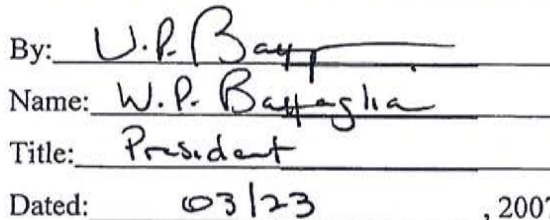 By: W.P. Batt
Name: W.P. Battaglia
Title: President
Dated: 03/23, 2007